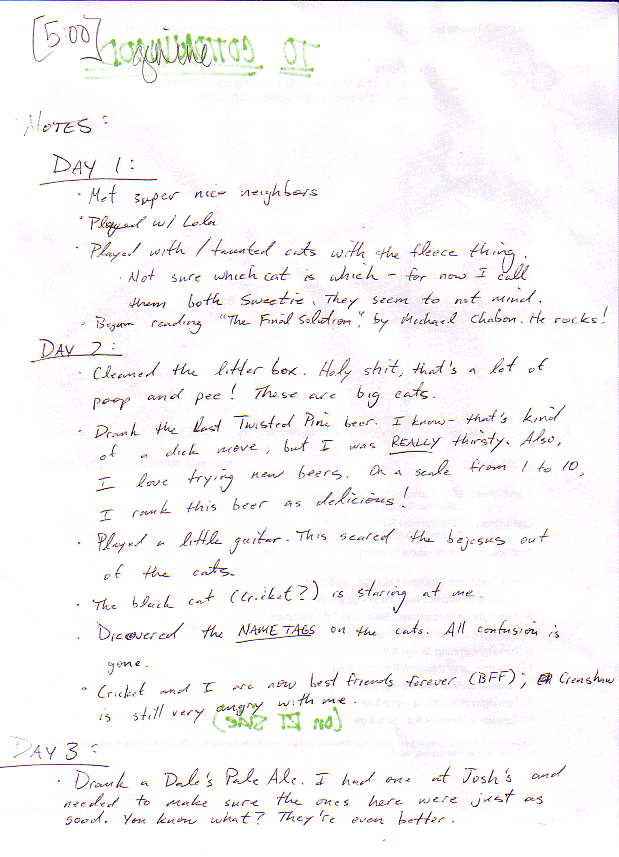 [5:00]
TO COTTONWOOD
NOTES:
DAY 1:
· Met super nice neighbors
· Played w/ Lola
· Played with / taunted cats with the fleece thing.
· Not sure which cat is which - for now I call
them both Sweetie. They seem to not mind.
· Began reading "The Final Solution", by Michael Chabon. He rocks!
DAY 2:
· Cleaned the litter box. Holy shit, that's a lot of
poop and pee! These are big cats.
· Drank the last Twisted Pine beer. I know - that's kind
of a dick move, but I was REALLY thirsty. Also,
I love trying new beers. On a scale from 1 to 10,
I rank this beer as delicious!
· Played a little guitar. This scared the bejesus out
of the cats.
· The black cat (Cricket?) is staring at me.
· Dicovered the NAME TAGS on the cats. All confusion is
gone.
· Cricket and I are now best friends forever (BFF); Crenshaw
is still very angry with me.
(on RT side)
DAY 3:
· Drank a Dale's Pale Ale. I had one at Josh's and
needed to make sure the ones here were just as
good. You know what? They're even better.